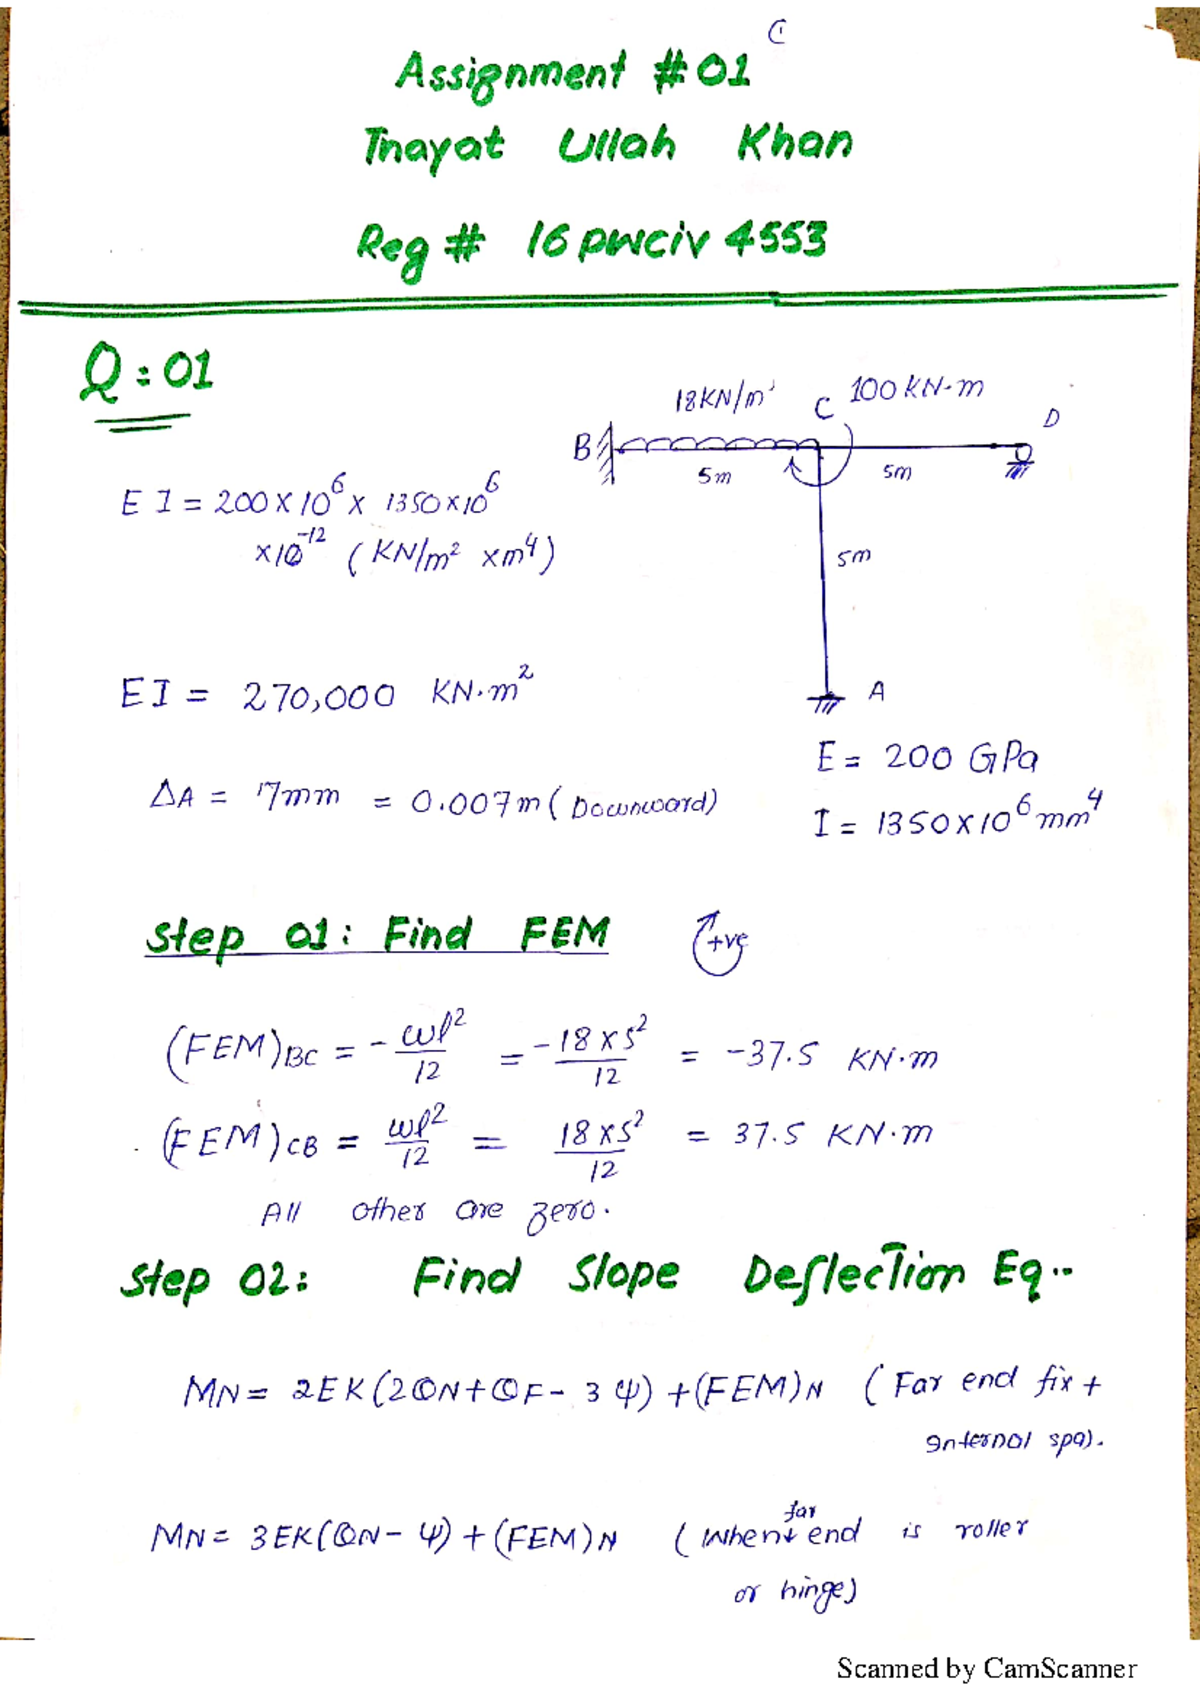 Assignment #01
Inayat Ullah Khan
Reg # 16pwciv4553
Q:01
18KN/m'
C
100 KN-m
D
B
5m
5m
EI = 200 X 10⁶ x 1350x10⁶
x10⁻¹² (KN/m² xm⁴)
5m
EI = 270,000 KN.m²
A
E = 200 GPa
ΔA = 17mm = 0.007m (Downward)
I = 1350X10⁶mm⁴
Step 01: Find FEM
+ve
(FEM)BC = - wl²/12 = -18x5²/12 = -37.5 KN.m
(FEM)CB = wl²/12 = 18x5²/12 = 37.5 KN.m
All others are zero.
Step 02: Find Slope Deflection Eq..
MN = 2EK(2ΘN+ΘF-3Ψ)+(FEM)N (Far end fix +
internal spa).
MN = 3EK(ΘN-Ψ)+(FEM)N (When far end is roller
or hinge)
Scanned by CamScanner